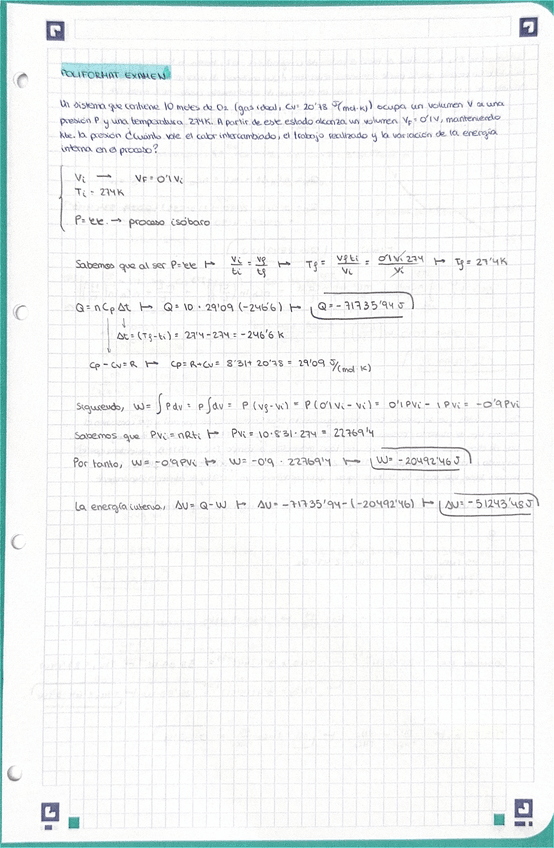 POLIFORMAT EXAMEN
Un sistema que contiene 10 moles de O2 (gas ideal, Cv = 20'78 J/(mol·K)) ocupa un volumen V a una
presión P y una temperatura 274K. A partir de este estado alcanza un volumen VF = 0'1V, manteniendo
kte. la presión ¿Cuánto vale el calor intercambiado, el trabajo realizado y la variación de la energía
interna en el proceso?
Vi → VF = 0'1 Vi
Ti = 274K
P = kte. → proceso isóbaro
Sabemos que al ser P = kte ↦ Vi/ti = Vf/tf ↦ Tf = Vf ti/Vi = 0'1 Vi 274/Vi ↦ Tf = 27'4K
Q = nCp Δt ↦ Q = 10 · 29'09 (-246'6) ↦ Q = -71735'94 J
Δt = (Tf - ti) = 27'4 - 274 = -246'6 K
Cp - Cv = R ↦ Cp = R + Cv = 8'31 + 20'78 = 29'09 J/(mol·K)
Siguiendo, W = ∫ P dv = P ∫ dv = P (Vf - Vi) = P (0'1 Vi - Vi) = 0'1 P Vi - 1 P Vi = -0'9 P Vi
Sabemos que PVi = nRti ↦ PVi = 10·8'31·274 = 22769'4
Por tanto, W = -0'9 PVi ↦ W = -0'9 · 22769'4 ↦ W = -20492'46 J
La energía interna, ΔU = Q - W ↦ ΔU = -71735'94 - (-20492'46) ↦ ΔU = -51243'48 J